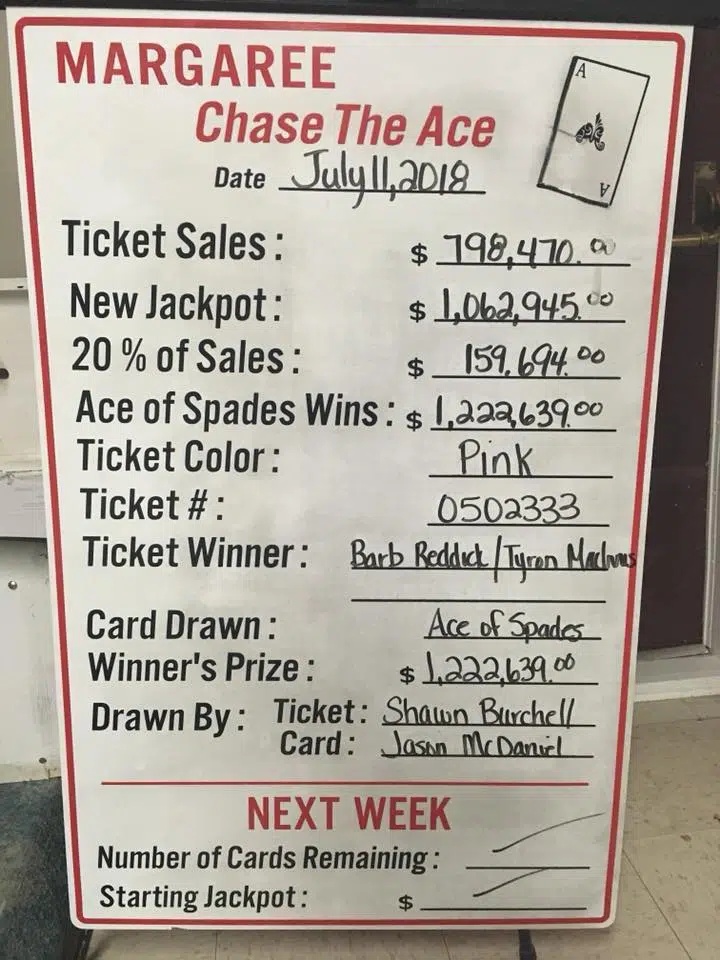 MARGAREE
Chase The Ace
A
A
Date July 11, 2018
Ticket Sales: $ 798,470.00
New Jackpot: $ 1,062,945.00
20 % of Sales: $ 159,694.00
Ace of Spades Wins: $ 1,222,639.00
Ticket Color: Pink
Ticket #: 0502333
Ticket Winner: Barb Reddick/Tyron MacInnis
Card Drawn: Ace of Spades
Winner's Prize: $ 1,222,639.00
Drawn By: Ticket: Shawn Burchell
Card: Jason McDaniel
NEXT WEEK
Number of Cards Remaining:
Starting Jackpot: $